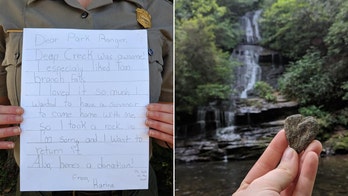 Dear Park Ranger,
Deep Creek was awesome.
I especially liked Tom
branch falls.
I loved it so much I
wanted to have a souvenir
to come home with me,
so I took a rock. Im
Im sorry and I want to
return it.
heres a donation!
From,
Karina